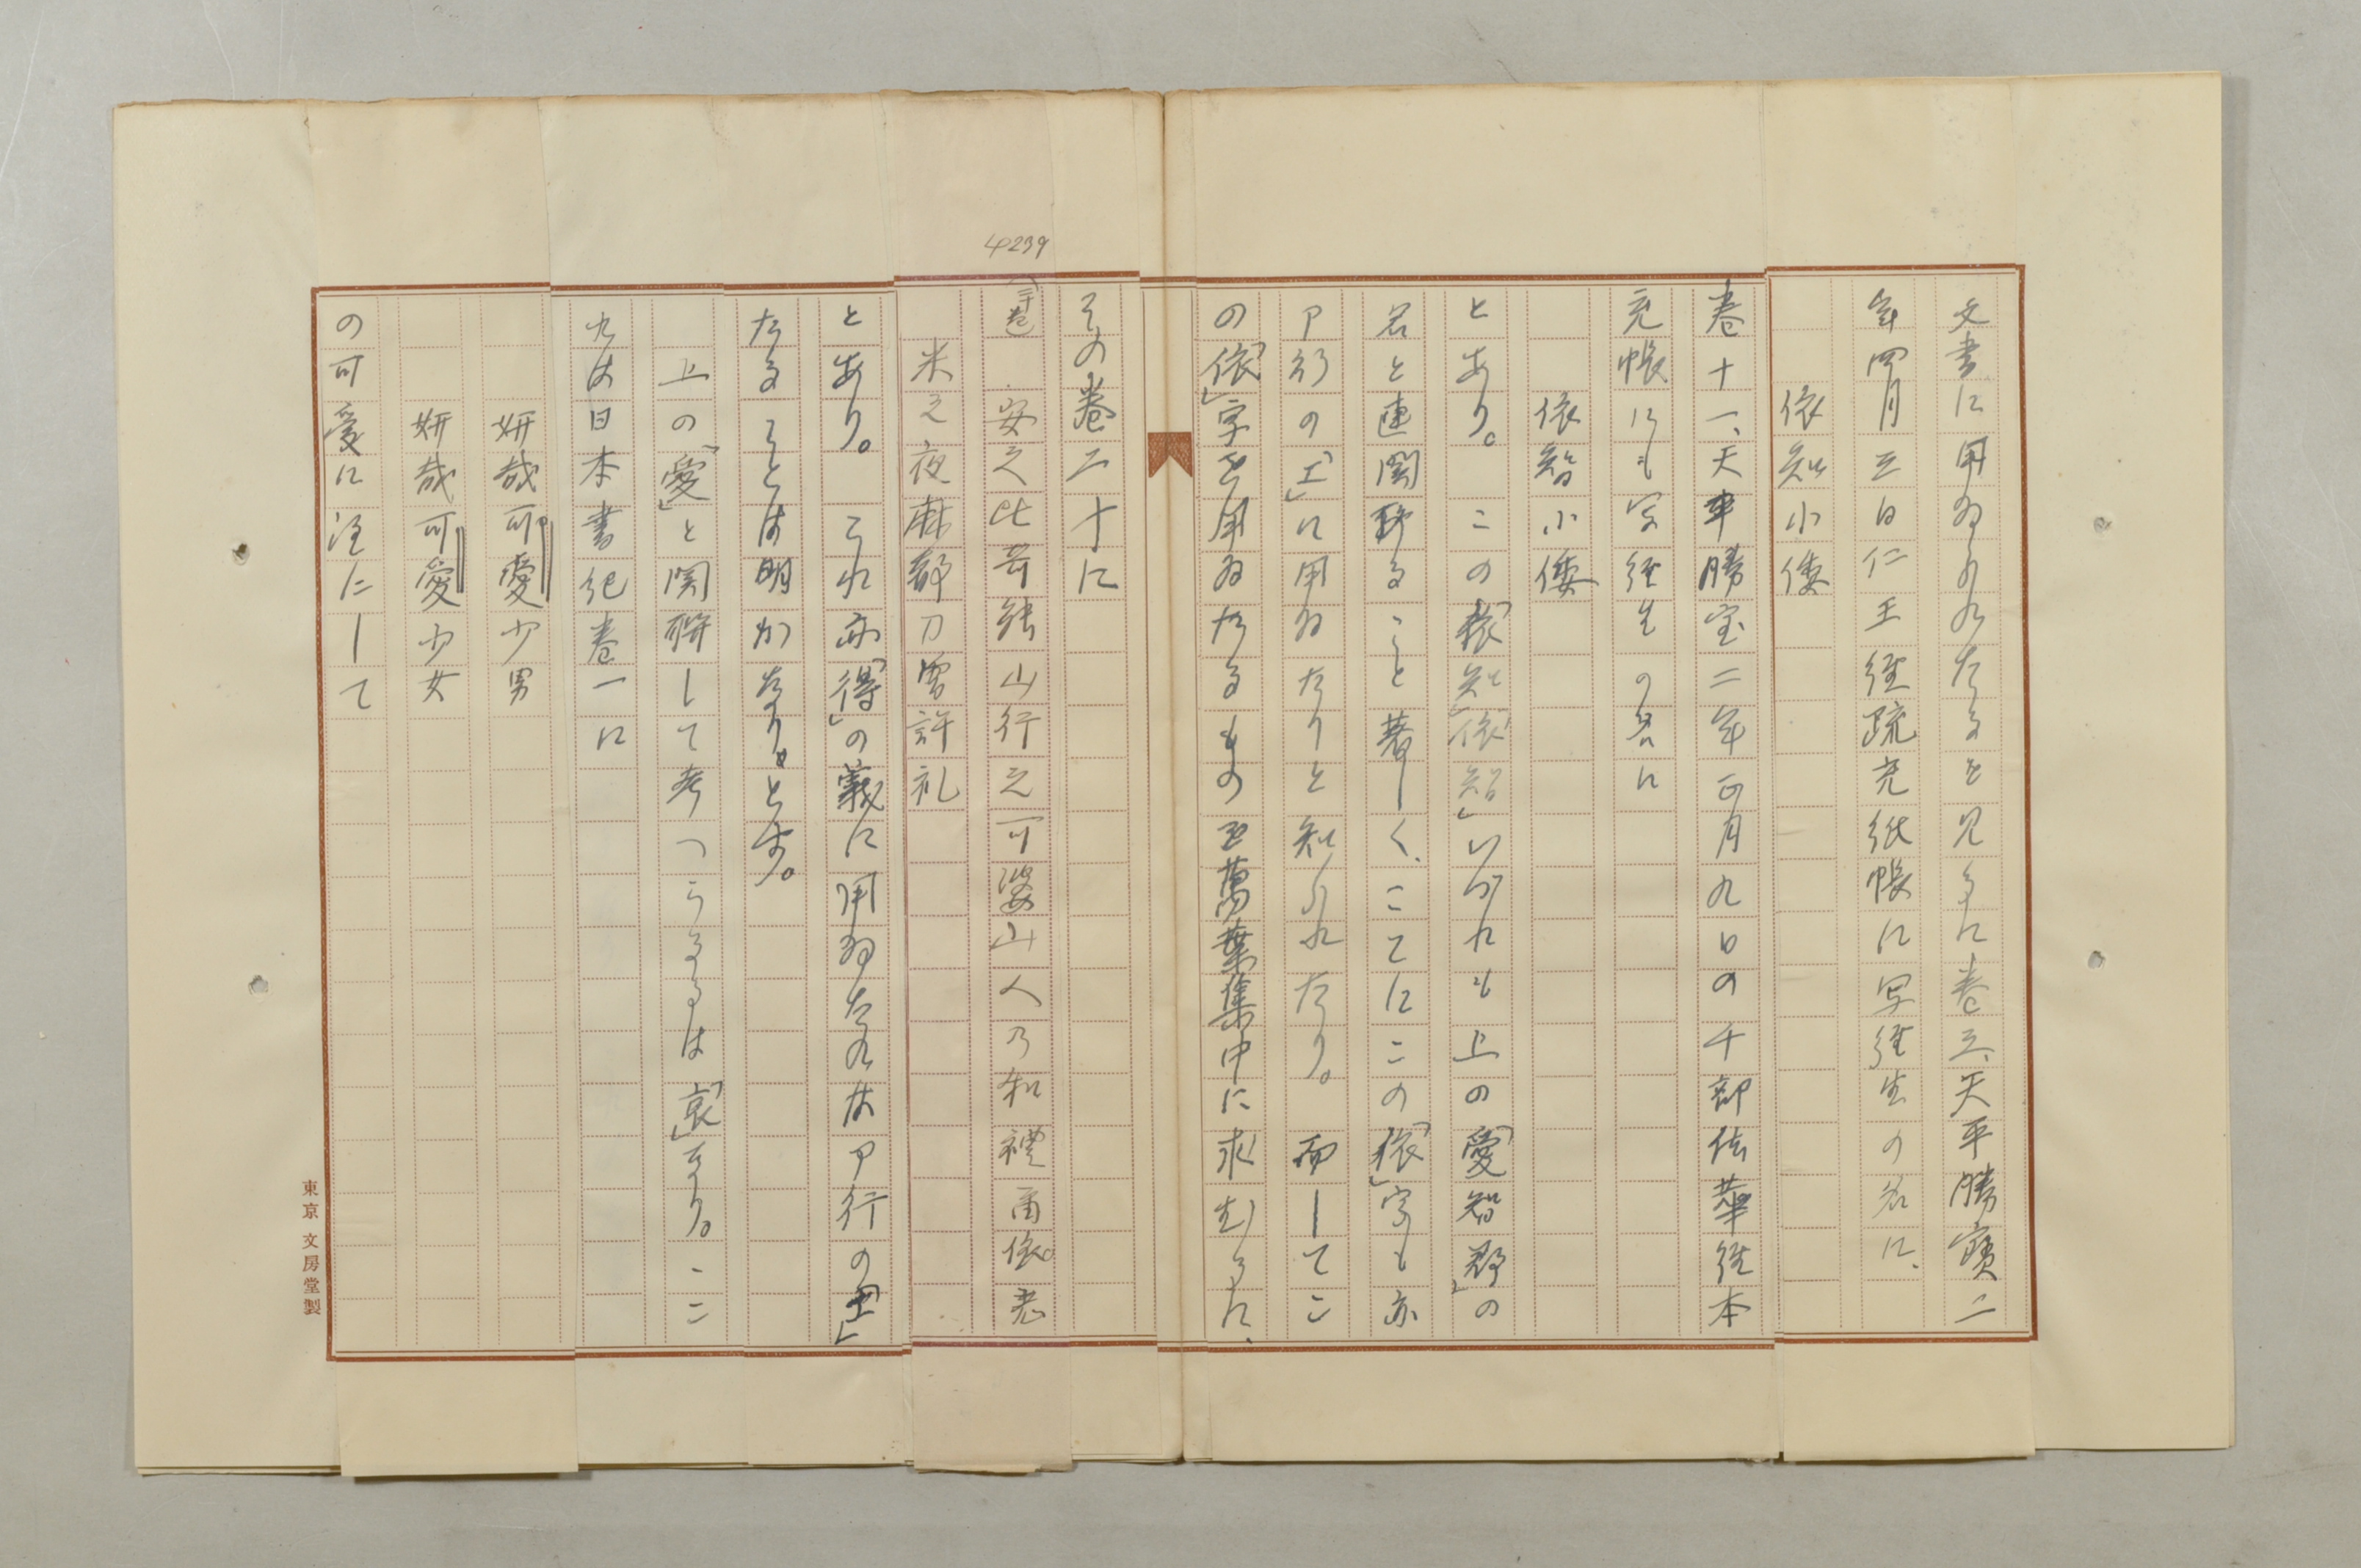 文書に用ゐられたるを見るに巻三、天平勝寳二
年四月三日仁王經疏充紙帳に写經生の名に、
依知小倭
巻十一、天平勝宝二年正月九日の千部法華經本
充帳にも写經生の名に
依智小倭
とあり。この「依知」「依智」いづれも上の「愛智郡」の
名と連関することと著しく、こてにこの「依」字も亦
ア行の「エ」に用ゐたりと知られたり。而してこ
の「依」字を用ゐたるもの を萬葉集中に求むるに、
その巻二十に
4239
(二十巻) 安之比奇能山行之可婆山人乃和禮爾依志
米之夜麻都刀曽許礼
とあり。これ亦「得」の義に用ゐたれはア行の「エ」
なることは明かなりとす。
上の「愛」と関聯して考へうるるは「哀」なり。こ
れは日本書紀巻一に
妍哉可愛少男
妍哉可愛少女
の可愛に注にして
東京 文房堂製